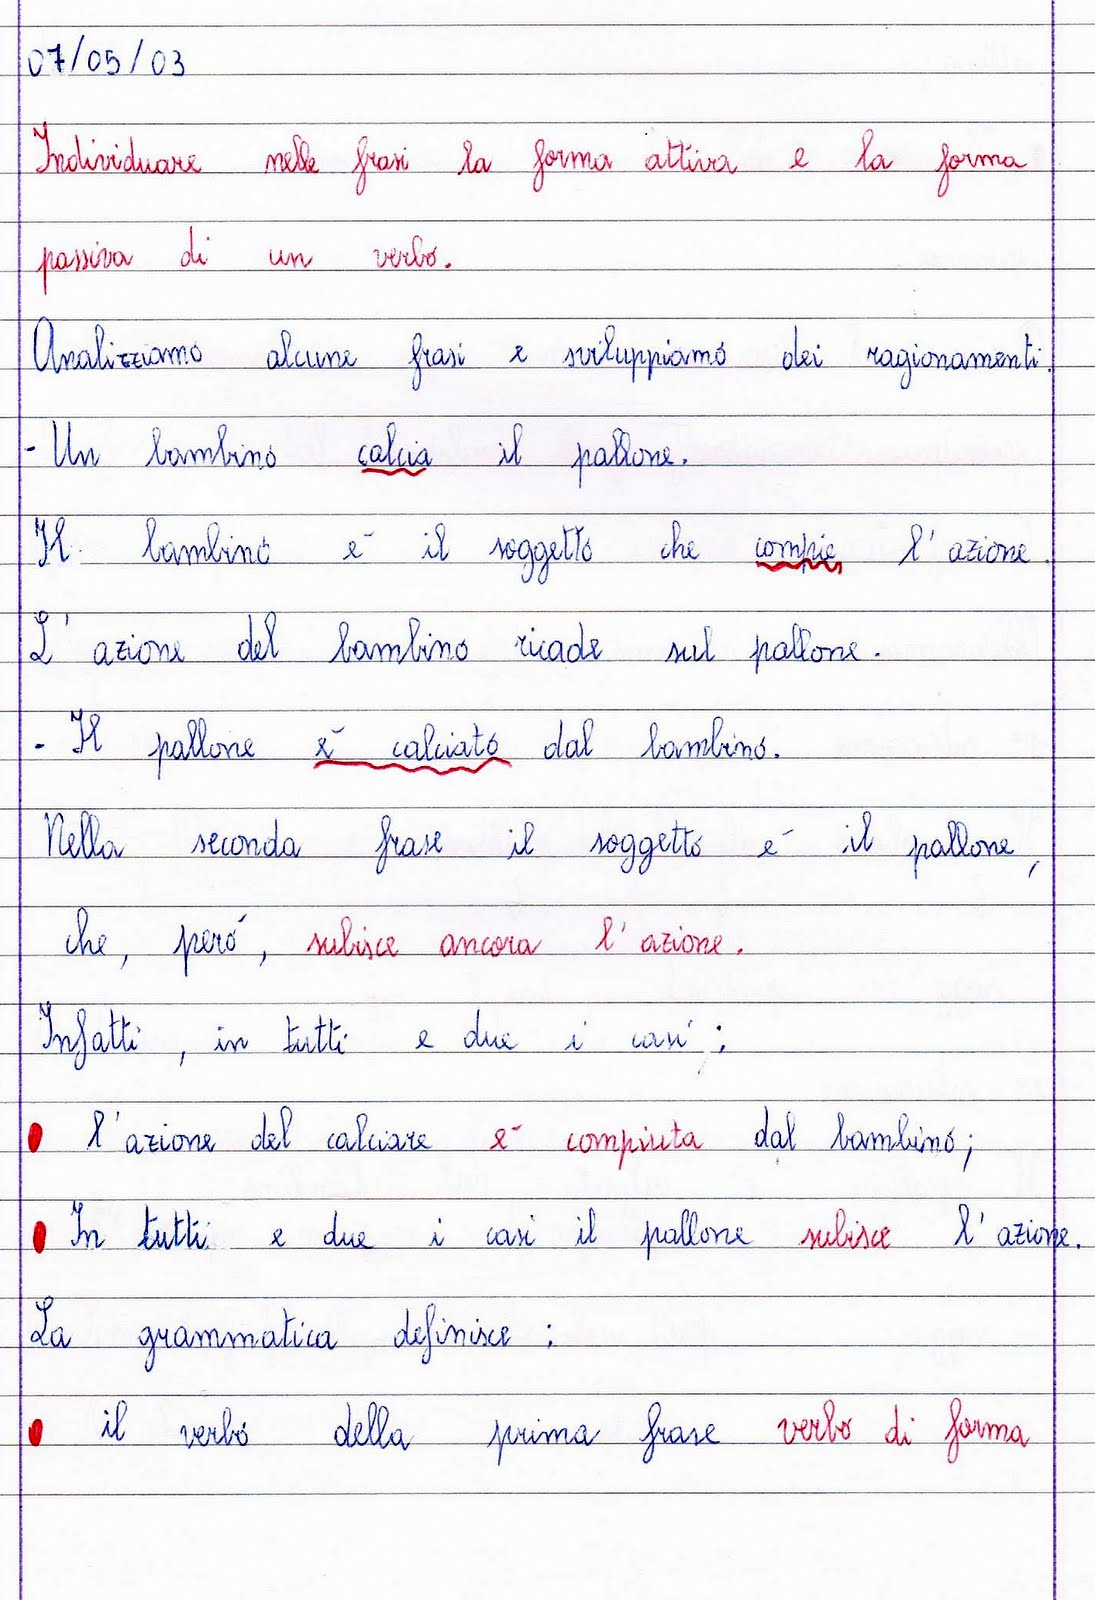 07/05/03
Individuare nelle frasi la forma attiva e la forma
passiva di un verbo.
Analizziamo alcune frasi e sviluppiamo dei ragionamenti.
- Un bambino calcia il pallone.
Il bambino è il soggetto che compie l'azione.
L'azione del bambino ricade sul pallone.
- Il pallone è calciato dal bambino.
Nella seconda frase il soggetto è il pallone,
che, però, subisce ancora l'azione.
Infatti, in tutti e due i casi:
• l'azione del calciare è compiuta dal bambino;
• In tutti e due i casi il pallone subisce l'azione.
La grammatica definisce:
• il verbo della prima frase verbo di forma